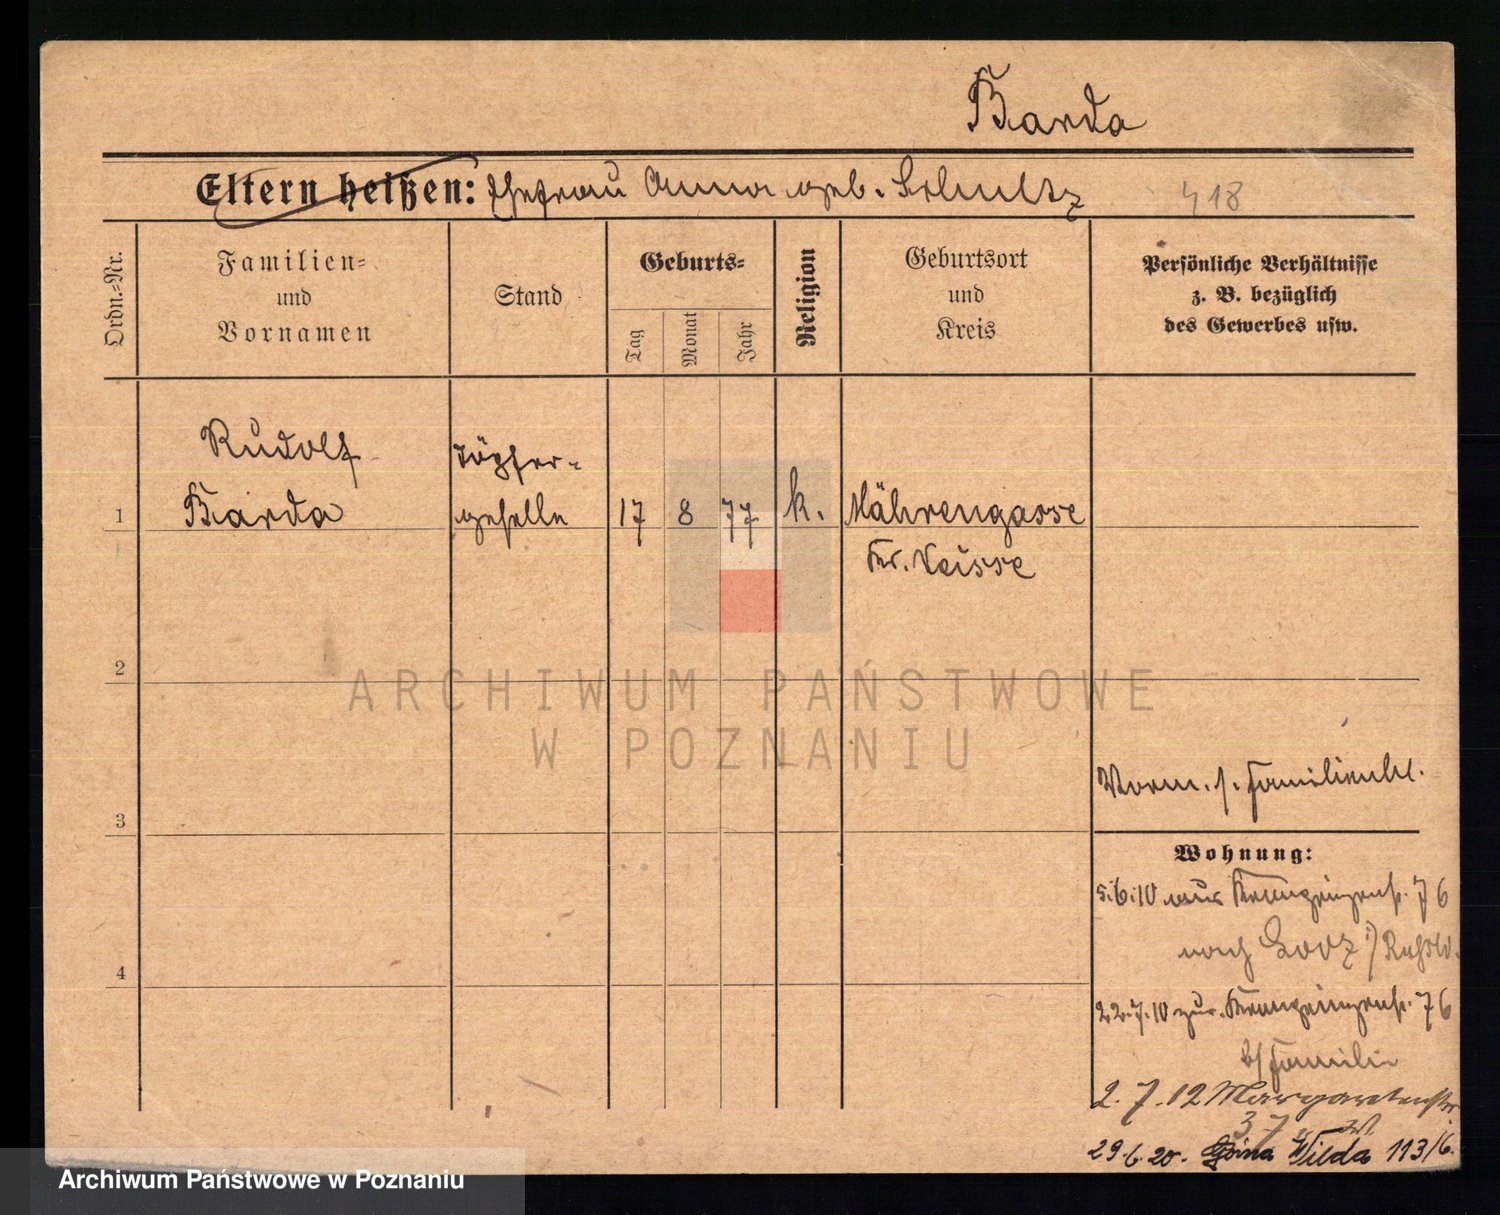 Barda
Eltern heißen: Ehefrau Anna geb. Schultz
418
Ordn.=Nr.
Familien=
und
Vornamen
Stand
Geburts=
Tag
Monat
Jahr
Religion
Geburtsort
und
Kreis
Persönliche Verhältnisse
z. B. bezüglich
des Gewerbes usw.
1
Rudolf
Barda
Töpfer-
geselle
17
8
77
k.
Mährengasse
Kr. Neisse
2
ARCHIWUM PAŃSTWOWE
W POZNANIU
3
Vorm. s. Familienbl.
Wohnung:
5.6.10 aus Kronprinzenstr. 76
nach Lodz / Rußld.
4
22.7.10 zur. Kronprinzenstr. 76
b/ Familie
2.7.12 Margaretenstr.
37
29.6.20. Górna Wilda 113/6.
Archiwum Państwowe w Poznaniu